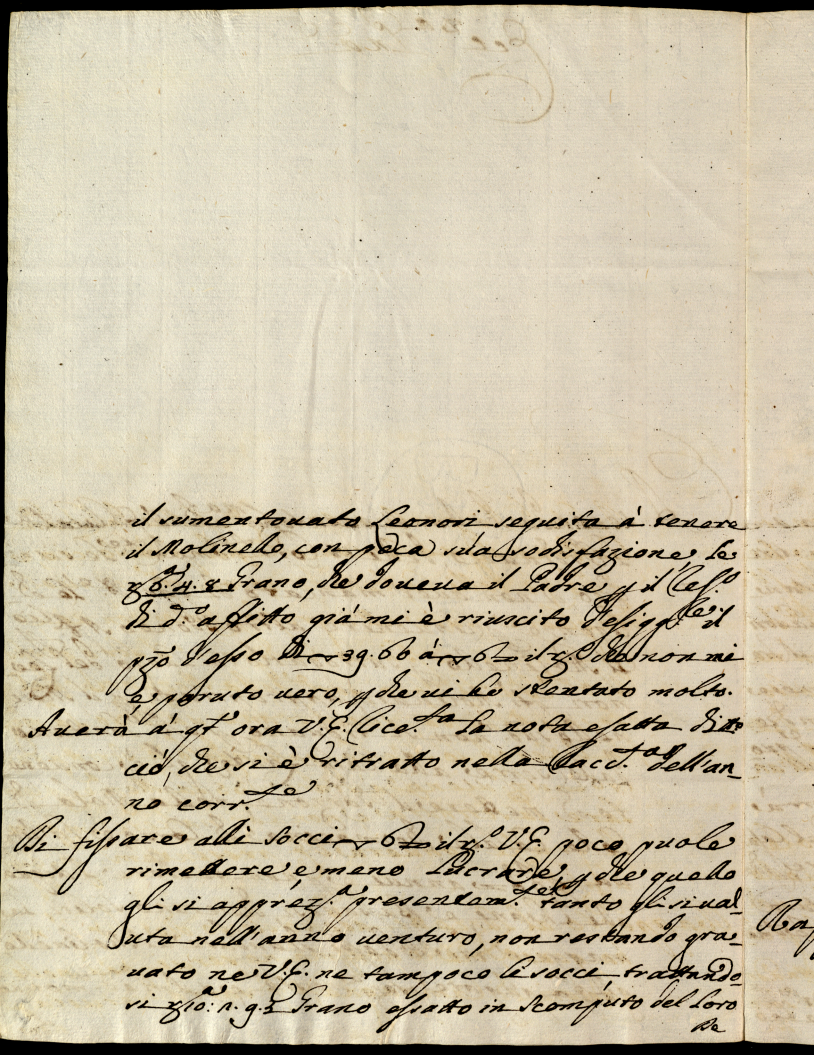 il sumentouato Leonori seguita á tenere
il Molinello, con poca súa sodisfazione le
6. 4. 8 Grano, che doueua il Padre p il
di d.º affitto giá mi è riuscito d'esigg.le il
pzo d'esso di 39. 66 á 6 il che non mi
è paruto uero, p che ui ho stentato molto.
Auerà á qt' ora V.E. riceu.ta la nota esatta di tto
ció, che si è ritratto nella Racc.ta dell'an=
no corr.te
Di fissare alli Socci 6 il V.E. poco puole
rimettere e meno Lucrare, p che quello
gli si apprez.a presentem.te tanto gli si ual=
uta nell'anno uenturo, non restando gra=
uato ne V.E. ne tampoco li socci, trattando=
si 1. 9. 3 Grano esatto in scomputo del Loro
De